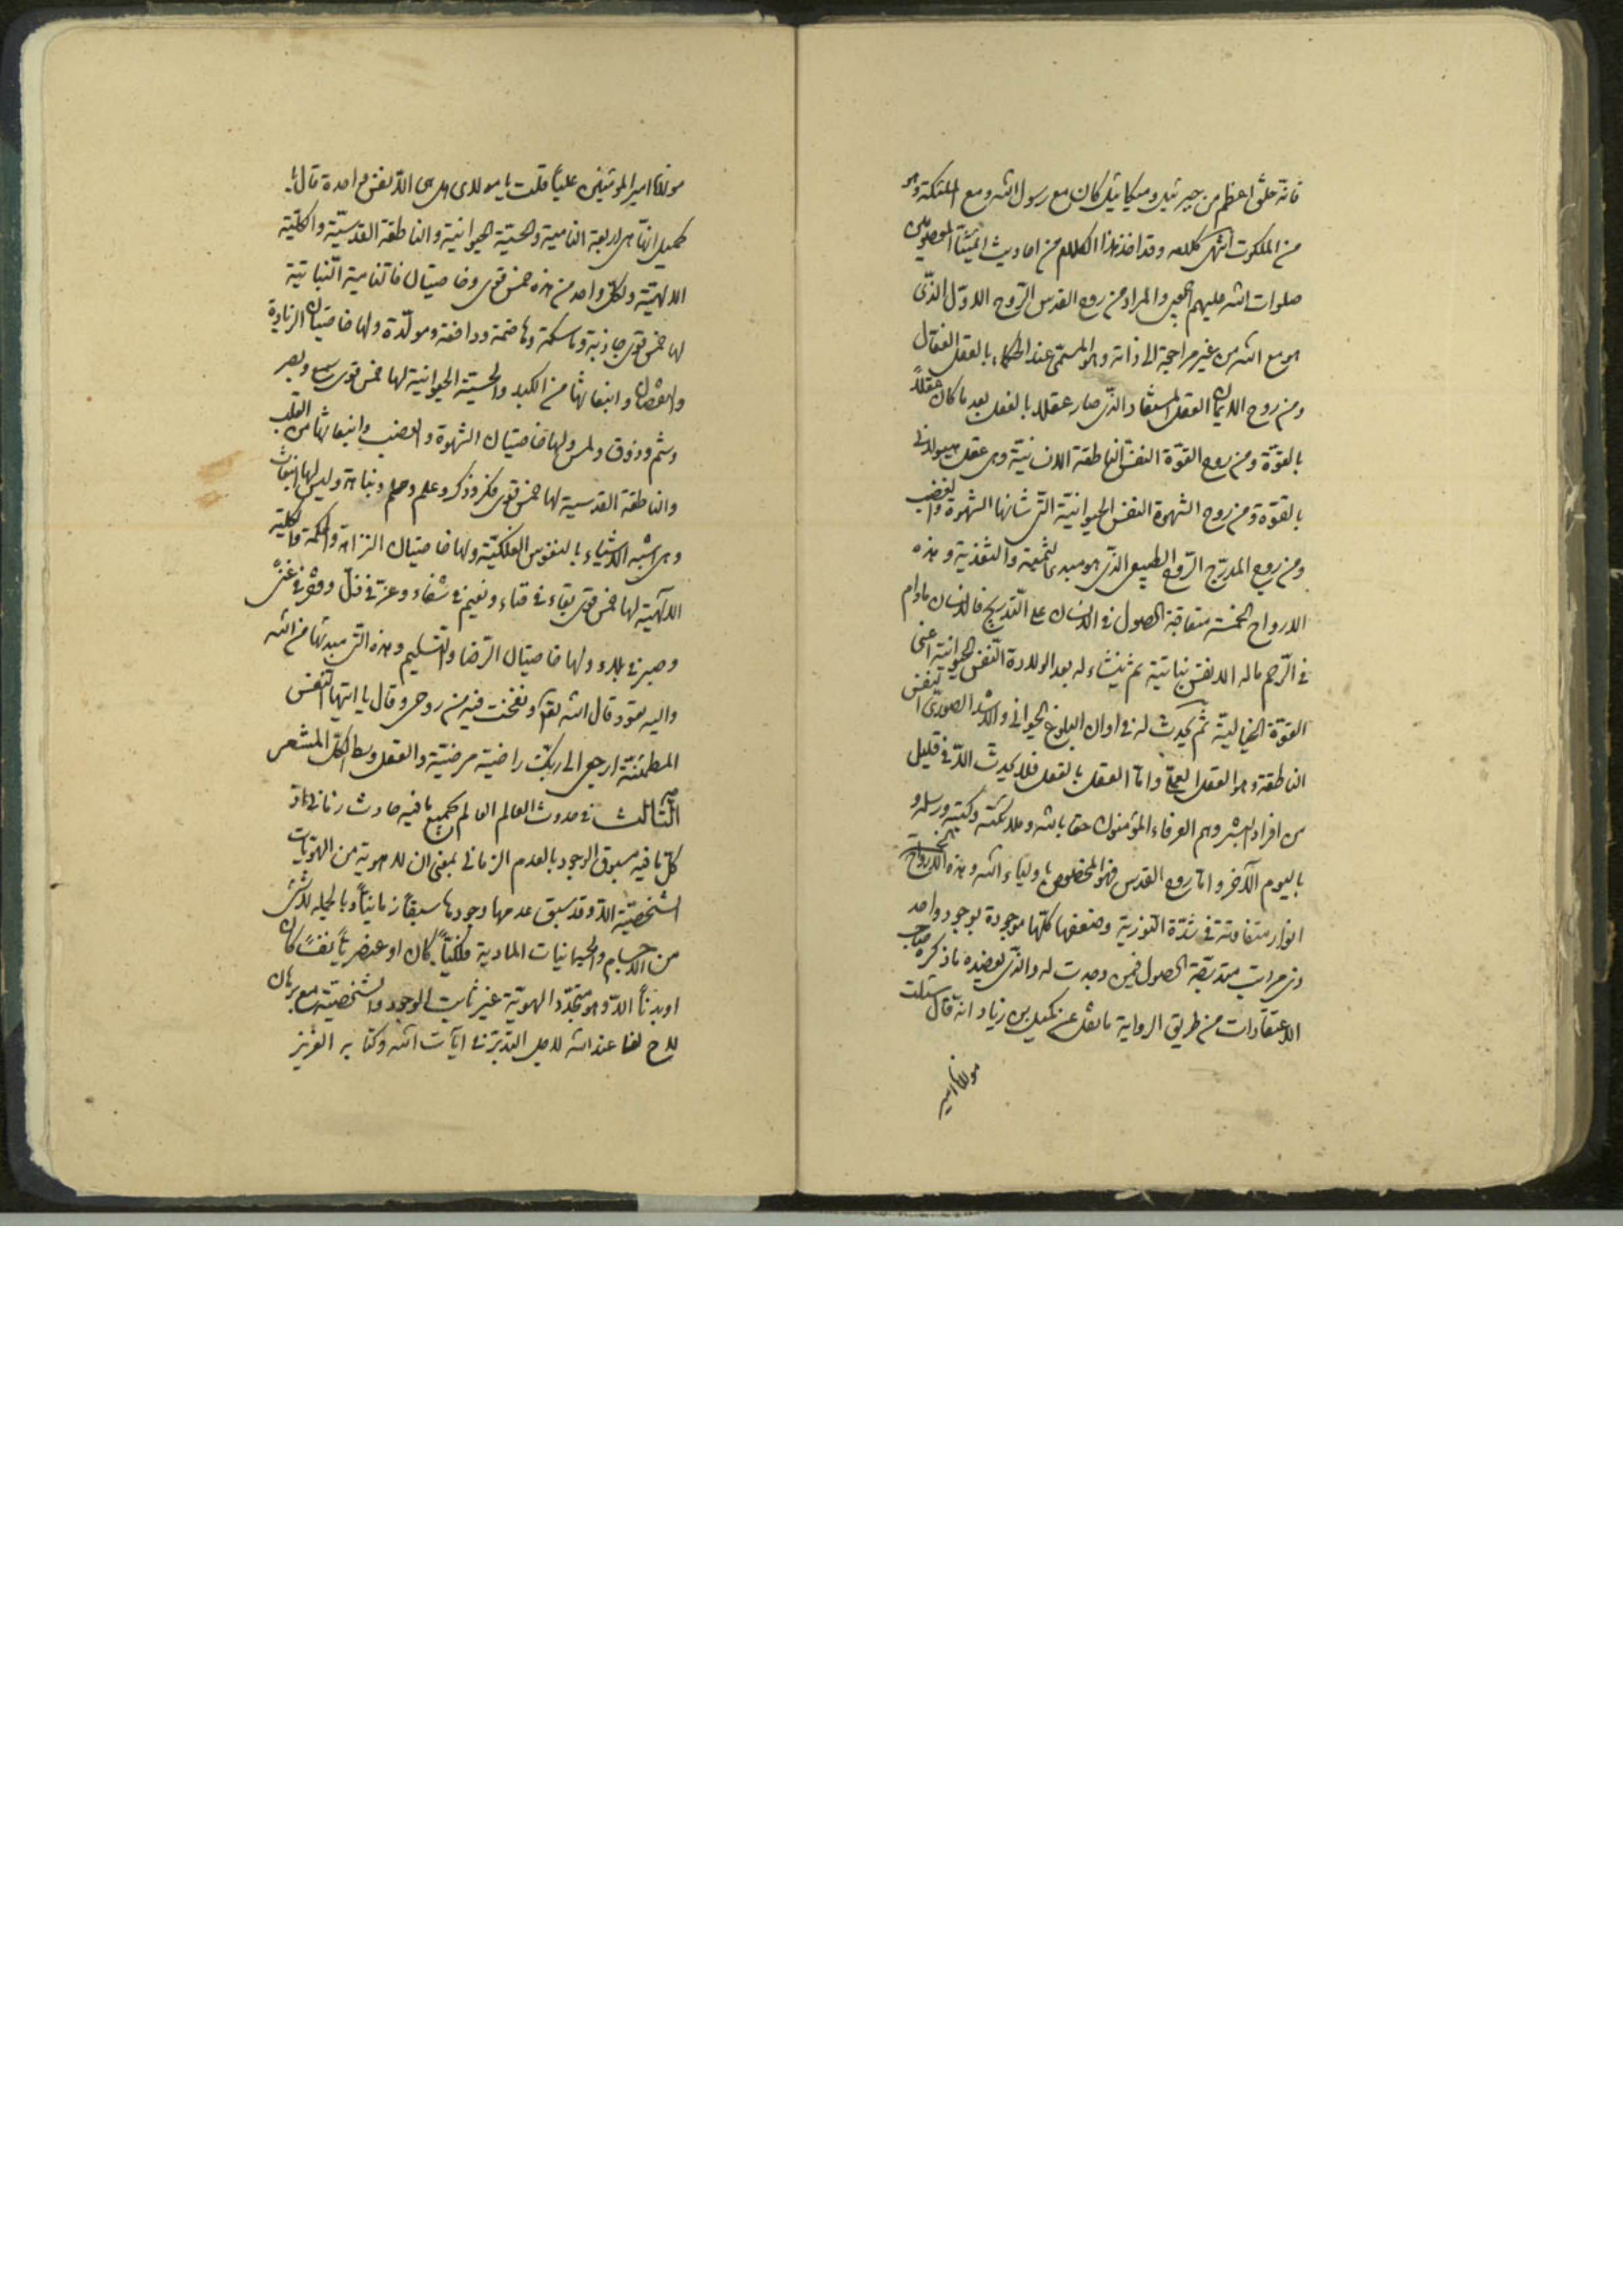 فانه خلق اعظم من جبرئيل وميكائيل كان مع رسول الله ومع الملئكة وهو
من الملكوت انتهى كلامه وقد اخذ هذا الكلام من احاديث ائمتنا المعصومين
صلوات الله عليهم اجمعين والمراد من روح القدس الروح الاول الذى
هو مع الله من غير مراجعة الى ذاته وهو المسمى عند الحكماء بالعقل الفعال
ومن روح الايمان العقل المستفاد الذى صار عقلا بالفعل بعد ما كان عقلاً
بالقوة ومن روح القوة النفس الناطقة الانسانية وهى عقل هيولانى
بالقوة ومن روح الشهوة النفس الحيوانية التى شانها الشهوة والغضب
ومن روح المدرج الروح الطبيعى الذى هو مبدء التنمية والتغذية وهذه
الارواح الخمسة متعاقبة الحصول فى الانسان على التدريج فالانسان مادام
فى الرحم ماله الا نفس نباتية ثم ينشاء له بعد الولادة النفس الحيوانية اعنى
القوة الخيالية ثم يحدث له فى اوان البلوغ الحيوانى والاشد الصورى النفس
الناطقة وهو العقل العملى واما العقل بالفعل فلا يحدث الا فى قليل
من افراد البشر وهم العرفاء المؤمنون حقا بالله وملائكته وكتبه ورسله و
باليوم الآخر واما روح القدس فهو المخصوص باولياء الله وهذه الارواح الخمسة
انوار متفاوتة فى شدة النورية وضعفها كلها موجودة بوجود واحد
ذى مراتب متدرجة الحصول فيمن وجدت له والذى يعضده ما ذكره صاحب
الاعتقادات من طريق الرواية ما نقل عن كميل بن زياد انه قال سئلت
مولانا امير
مولانا امير المؤمنين علياً قلت يا مولاى هل هى الا نفس واحدة قال يا
كميل انما هى اربعة النامية والحسية الحيوانية والناطقة القدسية والكلية
الالهية ولكل واحد من هذه خمس قوى وخاصيتان فالنامية النباتية
لها خمس قوى جاذبة وماسكة وهاضمة ودافعة ومولدة ولها خاصيتان الزيادة
والنقصان وانبعاثها من الكبد والحسية الحيوانية لها خمس قوى سمع وبصر
وشم وذوق ولمس ولها خاصيتان الشهوة والغضب وانبعاثها من القلب
والناطقة القدسية لها خمس قوى فكر وذكر وعلم وحلم ونباهة وليس لها انبعاث
وهى اشبه الاشياء بالنفوس الفلكية ولها خاصيتان النزاهة والحكمة والكلية
الالهية لها خمس قوى بقاء فى فناء ونعيم فى شقاء وعز فى ذل وفقر فى غنى
وصبر فى بلاء ولها خاصيتان الرضا والتسليم وهذه التى مبدئها من الله
واليه تعود قال الله تعالى ونفخت فيه من روحى وقال يا ايتها النفس
المطمئنة ارجعى الى ربك راضية مرضية والعقل وسط الكل المشعر
الثالث فى حدوث العالم العالم بجميع ما فيه حادث زمانى اذ
كل ما فيه مسبوق الوجود بالعدم الزمانى بمعنى ان لا هوية من الهويات
الشخصية الا وقد سبق عدمها وجودها سبقاً زمانياً وبالجملة لا شئ
من الاجسام والجسمانيات المادية فلكياً كان او عنصرياً نفساً كان
او بدناً الا وهو متجدد الهوية غير ثابت الوجود والشخصية مع برهان
لاح لنا عند الله لاجل التدبر فى آيات الله وكتابه العزيز